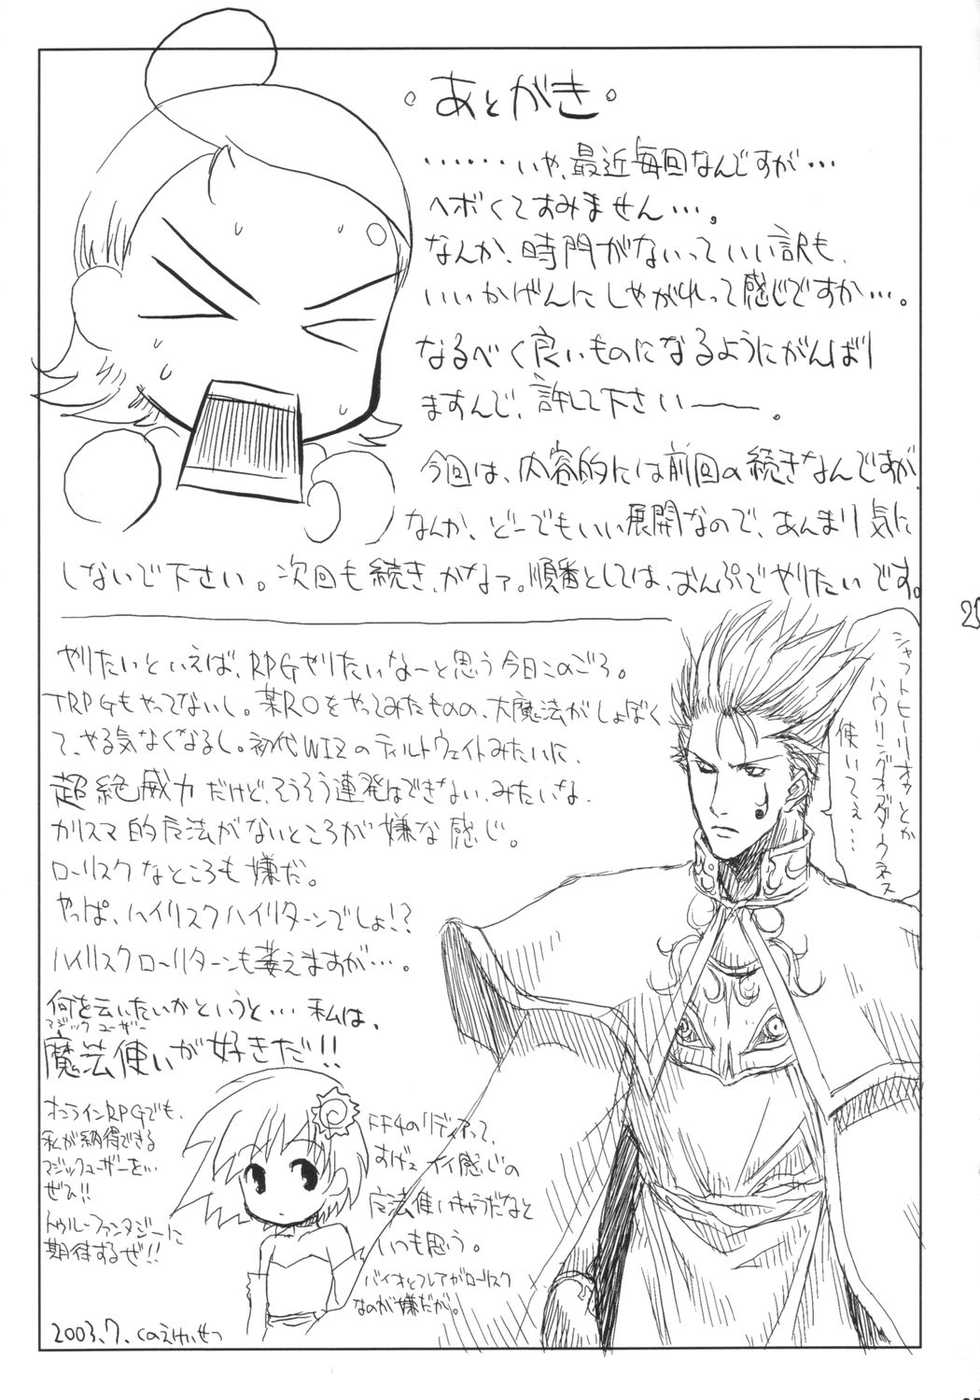 。あとがき。
‥‥‥いや、最近毎回なんですが…
ヘボくてすみません…。
なんか、時間がないっていい訳も、
いいかげんにしやがれって感じですか…。
なるべく良いものになるようにがんばり
ますんで、許して下さい――。
今回は、内容的には前回の続きなんですが、
なんか、どーでもいい展開なので、あんまり気に
しないで下さい。次回も続き、かなァ。順番としては、おんぷでやりたいです。
やりたいといえば、RPGやりたいなーと思う今日このごろ。
TRPGもやってないし。某ROをやってみたものの、大魔法がしょぼく
て、やる気なくなるし。初代WIZのティルトウェイトみたいに
超絶威力だけど、そうそう連発はできない、みたいな、
カリスマ的魔法がないところが嫌な感じ。
ローリスクなところも嫌だ。
やっぱ、ハイリスクハイリターンでしょ!?
ハイリスクローリターンも萎えますが…。
何を云いたいかというと…私は、
マジックユーザー
魔法使いが好きだ!!
オンラインRPGでも、
私が納得できる
マジックユーザーを…
ぜひ!!
トゥルーファンタジーに
期待するぜ!!
FF4のリディアって、
すげェイイ感じの
魔法使いキャラだなと
いつも思う。
バイオとフレアがローリスク
なのが嫌だが。
シャフトヒーリオゥとか
ハウリングオブダークネス
使いてえ…
2003.7. くのえけいせつ